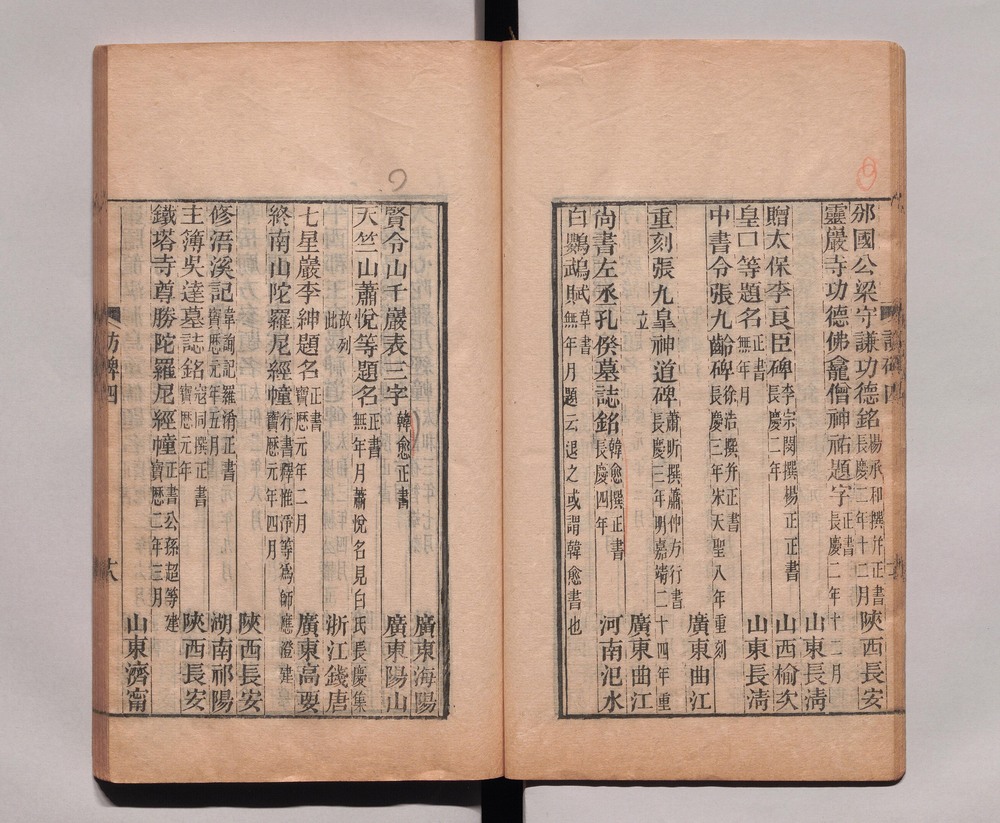 邠國公梁守謙功德銘 楊承和撰幷正書 長慶二年十二月 陝西長安
靈巖寺功德佛龕僧神祐題字 正書 長慶二年十二月 山東長淸
贈太保李良臣碑 李宗閔撰楊正正書 長慶二年 山西榆次
皇口等題名 正書 無年月 山東長淸
中書令張九齡碑 徐浩撰幷正書 長慶三年宋天聖八年重刻 廣東曲江
重刻張九皐神道碑 蕭昕撰蕭仲方行書 長慶三年明嘉靖二十四年重立 廣東曲江
尚書左丞孔戣墓誌銘 韓愈撰正書 長慶四年 河南氾水
白鸚鵡賦 草書 無年月題云退之或謂韓愈書也
廣東海陽
賢令山千巖表三字 韓愈正書 廣東陽山
天竺山蕭悅等題名 正書 無年月蕭悅名見白氏長慶集故列此 浙江錢唐
七星巖李紳題名 正書 寶歷元年二月 廣東高要
終南山陀羅尼經幢 行書釋惟淨等為師應證建 寶歷元年四月 陝西長安
修浯溪記 韋詢記羅洧正書 寶歷元年五月 湖南祁陽
主簿吳達墓誌銘 寇同撰正書 寶歷元年 陝西長安
鐵塔寺尊勝陀羅尼經幢 正書公孫超等建 寶歷二年三月 山東濟甯
訪碑四